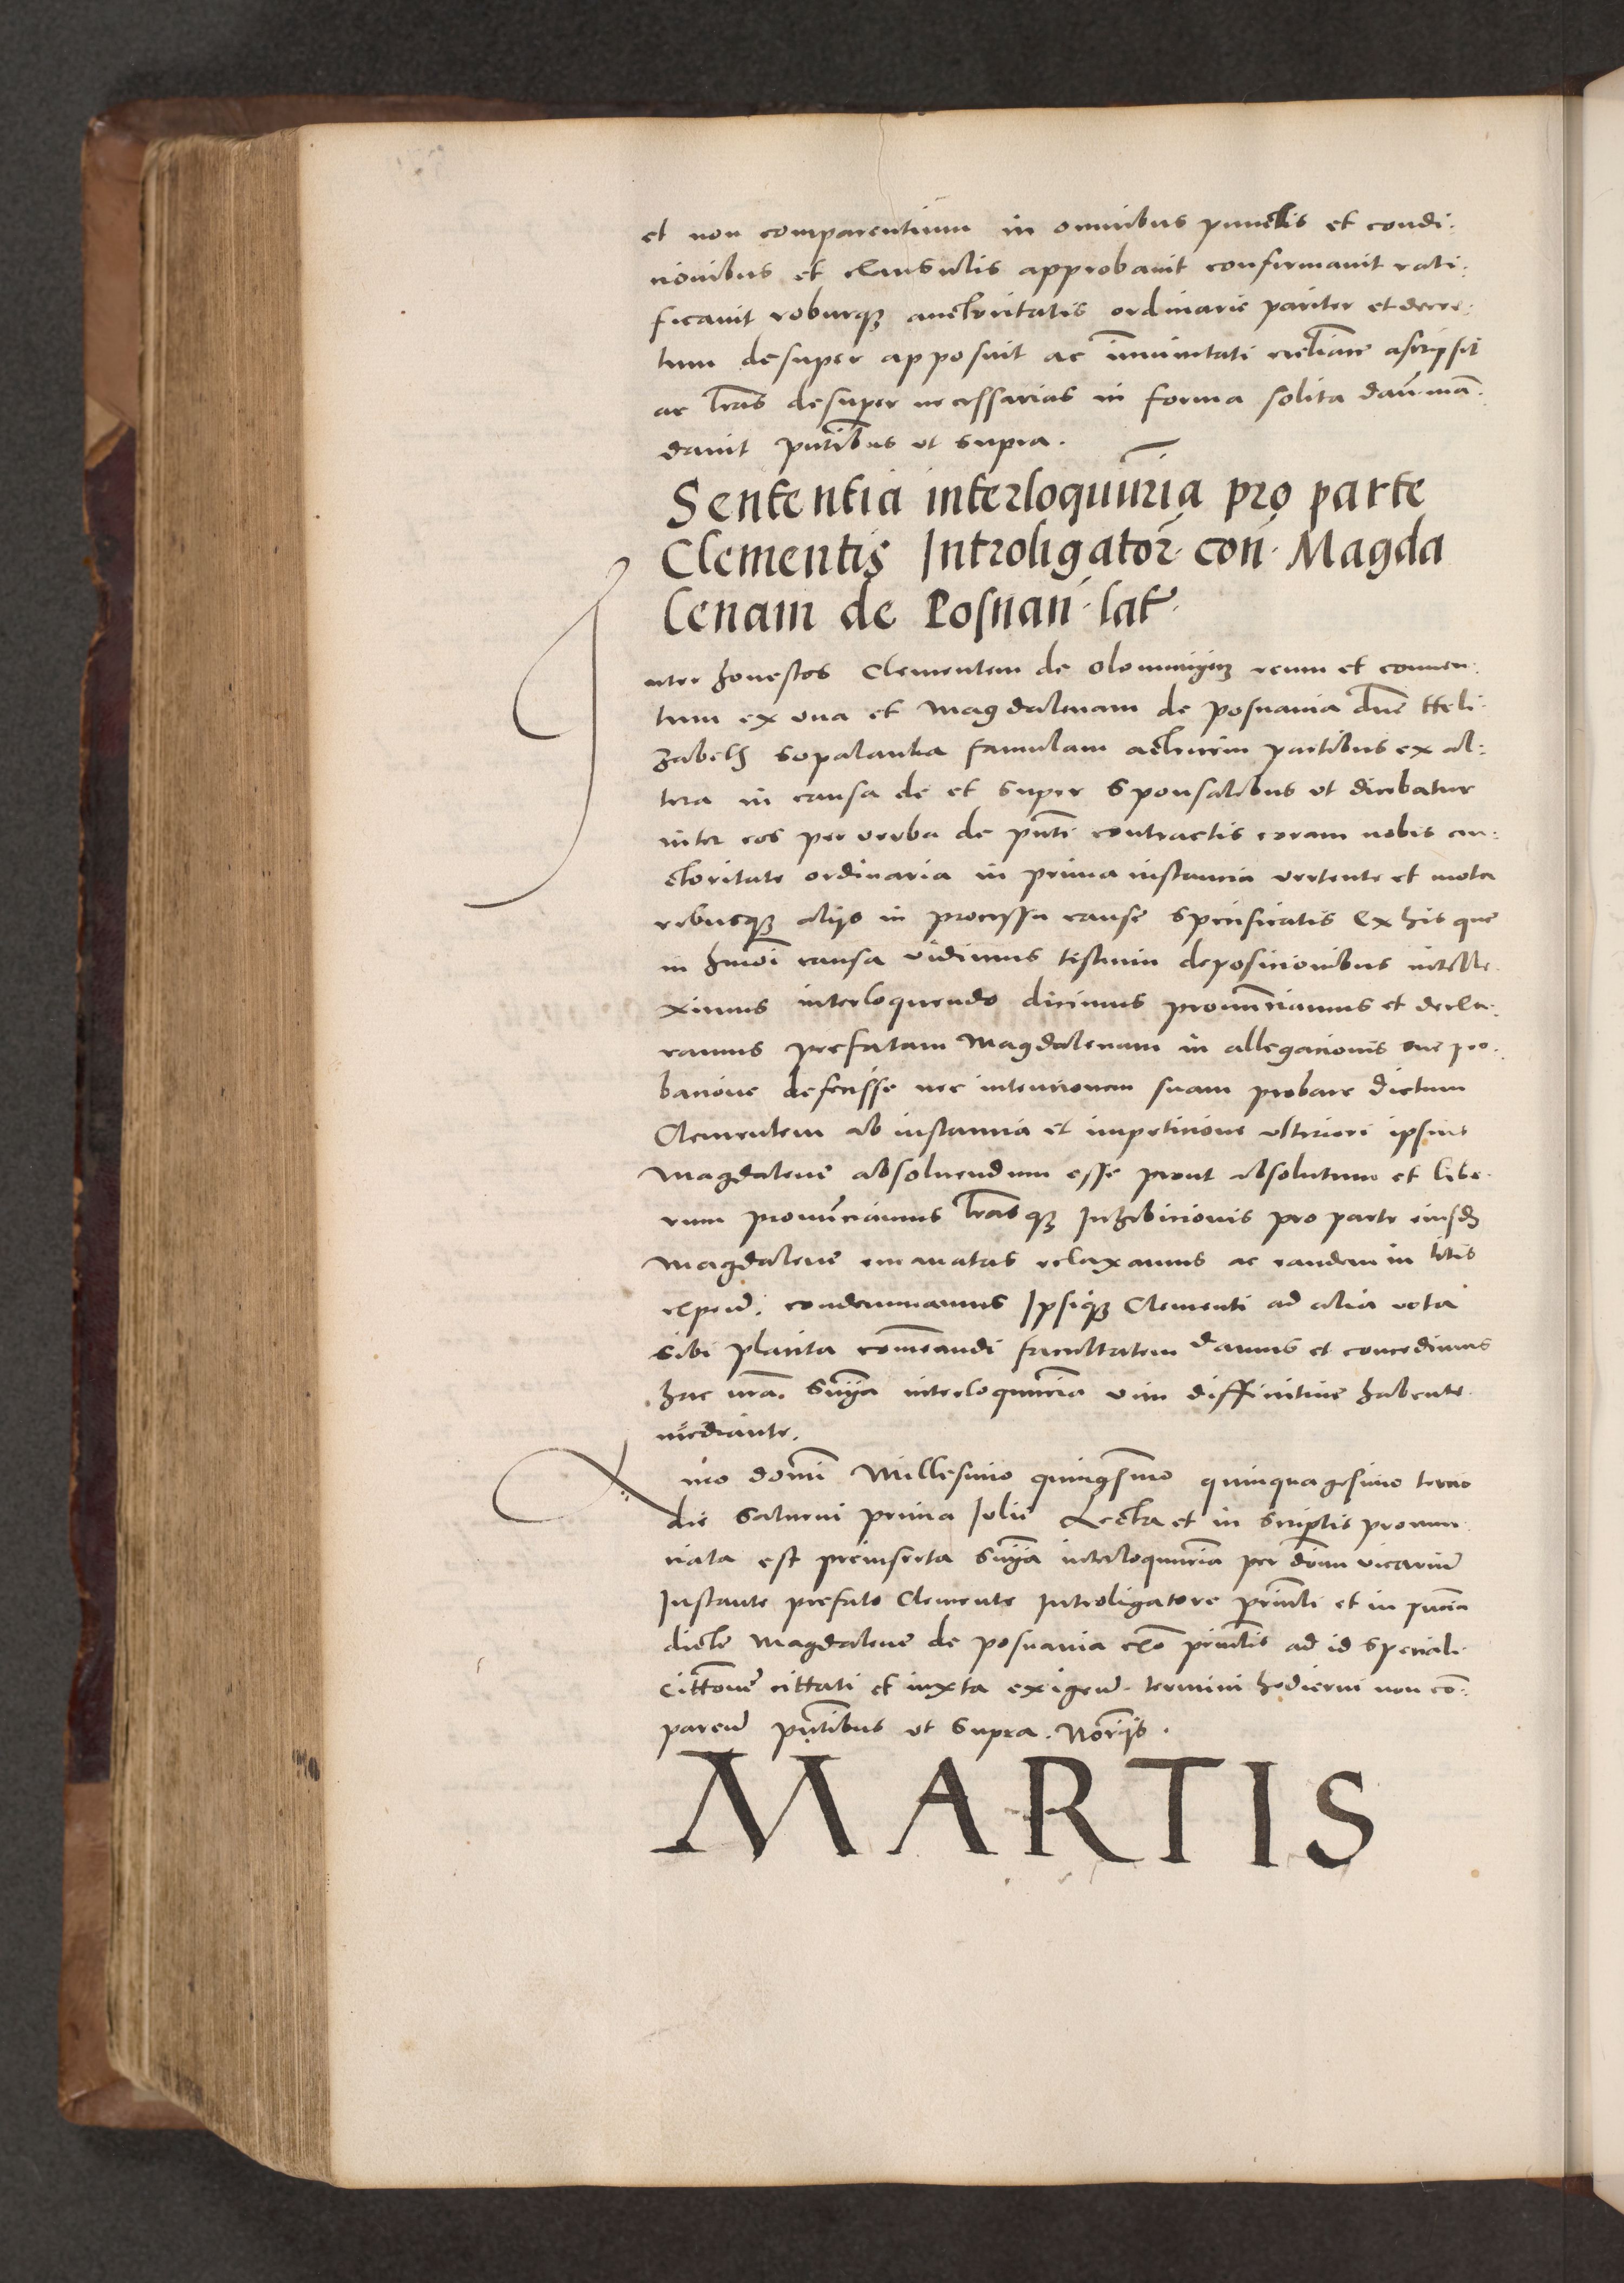 et non comparentium in omnibus punctis et condi:
tionibus et clausulis approbavit confirmavit rati:
ficavit roburq₃ auctoritatis ordinarie pariter et decre:
tum desuper apposuit ac ascripsit
ac lr̃as desuper necessarias in forma solita man:
davit pn̄tibus ut supra.
Sententia interloqutũria pro parte
Clementis Introligator̃. con̄. Magda
lenam de Posnan̄. lat̃.
Inter honestos Clementem de reum et conven:
tum ex una et Magdalenam de Posnania dnē Heli:
zabeth famulam actricem partibus ex al:
tera in causa de et super Sponsalibus ut dicebatur
inter eos per verba de pn̄ti contractis coram nobis au:
ctoritate ordinaria in prima instancia vertente et mota
rebusq₃ alijs in processu cause specificatis Ex his que
in hmōi causa vidimus testium deposicionibus intelle:
ximus interloquendo dicimus pronunciamus et decla:
ramus prefatam Magdalenam in allegacionis sue pro:
bacione defecisse nec intencionem suam probare dictum
Clementem ab instancia et impeticione ulteriori ipsius
Magdalene absolvendum esse prout absolutum et libe:
rum pronunciamus lr̃asq₃ Inhibicionis pro parte eiusd̄
Magdalene emanatas relaxamus ac eandem in litis
expen̄. condemnamus Ipsiq₃ Clementi ad alia vota
sibi placita facultatem damus et concedimus
hac nrā. Sn̄ia interloqutr̄ia vim diffinitive habente
mediante.
Anno domī Millesimo quinq̄smo quinquagesimo tercio
die Saturni prima Julii Lecta et in scriptis pronun:
ciata est preinserta Sn̄ia interloqutr̄ia per dn̄m vicarium
Instante prefato Clemente Introligatore prn̄cli et in pn̄cia
dicte Magdalene de Posnania ad id speciali
citt̄one cittati et iuxta exigen̄. termini hodierni non cō:
paren̄ pn̄tibus ut supra. Nor̄ijs.
MARTIS